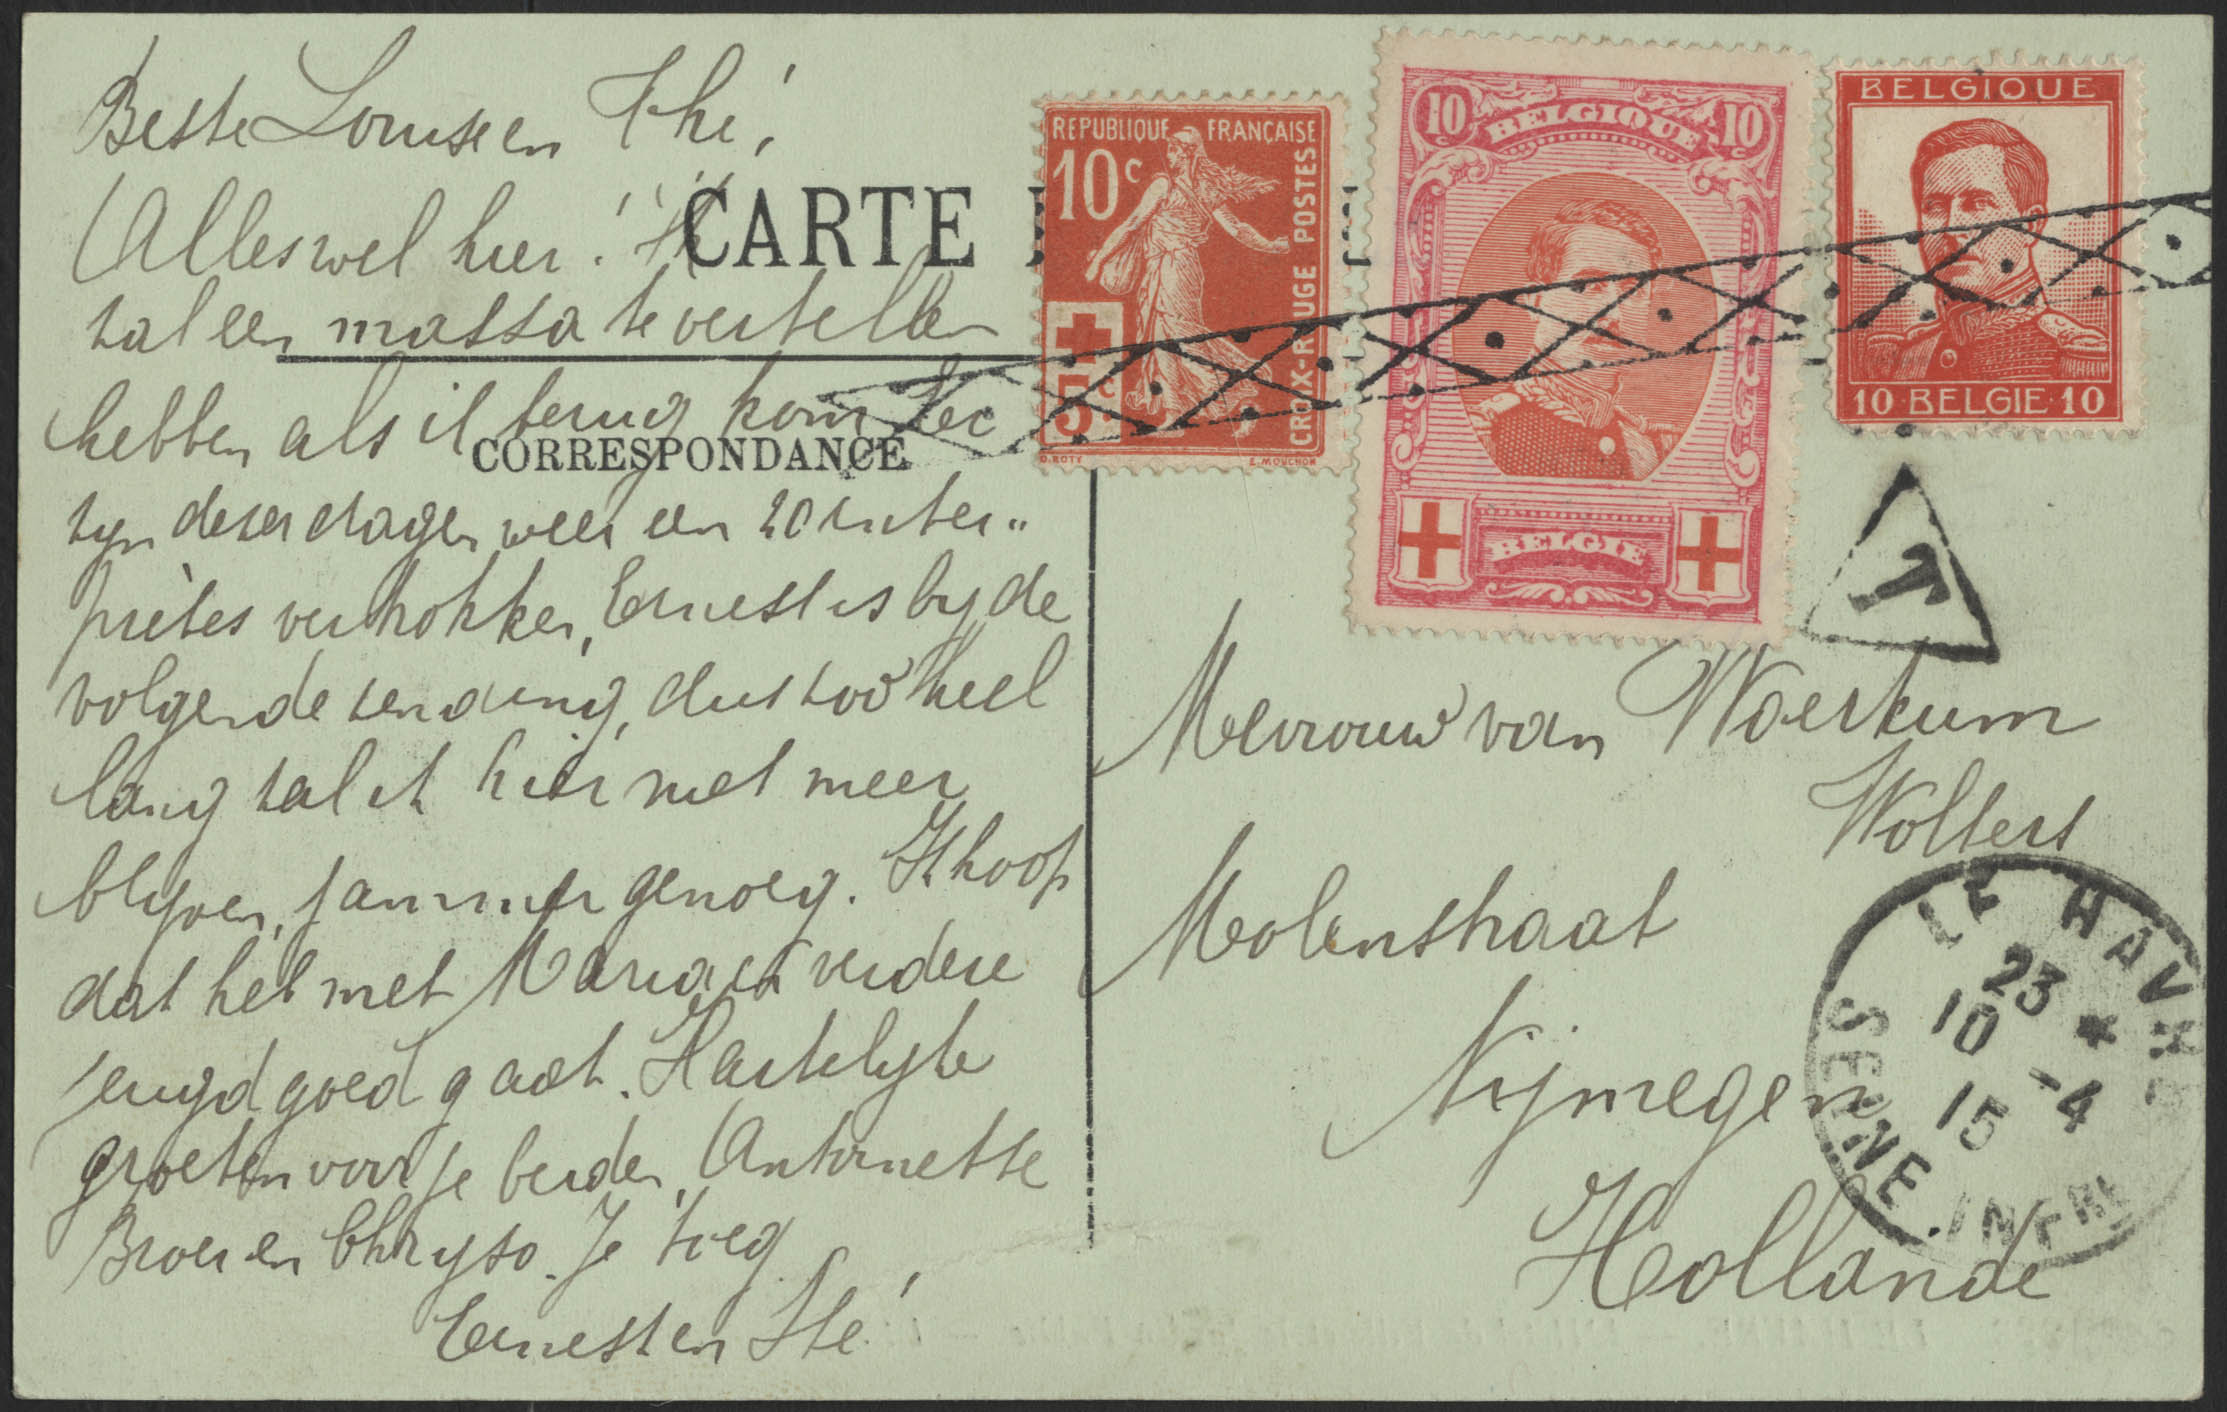 Beste Louise en Thé,
Alles wel hier! 'k
CARTE
zal een massa te vertellen
hebben als ik terug kom
CORRESPONDANCE
zyn dezer dagen weer een 20 inter..
prètes vertrokken, Ernest is by de
volgende zending, dus zoo heel
lang zal ik hier niet meer
blyven, jammer genoeg. Ik hoop
dat het met Maria en verdere
jeugd goed gaat. Hartelyke
groeten voor je beiden, Antoinette
Broer en Chryso. Je toeg.
Ernest en Sté
REPUBLIQUE FRANÇAISE
10 c
5 c
CROIX-ROUGE POSTES
O. ROTY
E. MOUCHON
10 BELGIQUE 10
BELGIE
BELGIQUE
10 BELGIE 10
T
Mevrouw van Woerkum
Wolters
Molenstraat
Nijmegen
Hollande
LE HAVRE
23 *
10 -4
15
SEINE INFRE